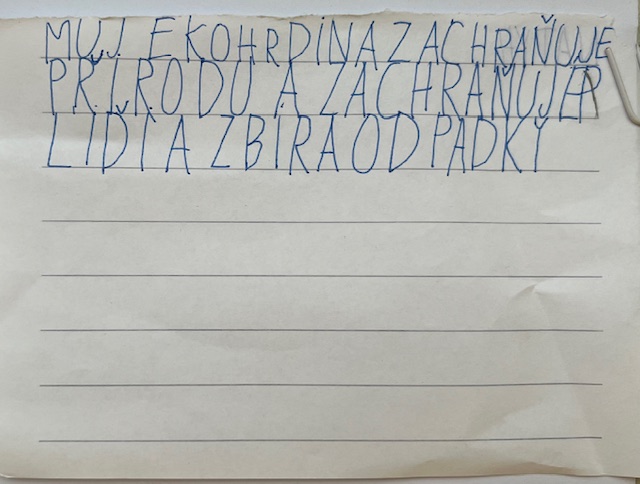 MUJ EKOHRDINA ZACHRAŇUJE
PŘIRODU A ZACHRAŇUJE
LIDI A ZBIRA ODPADKY